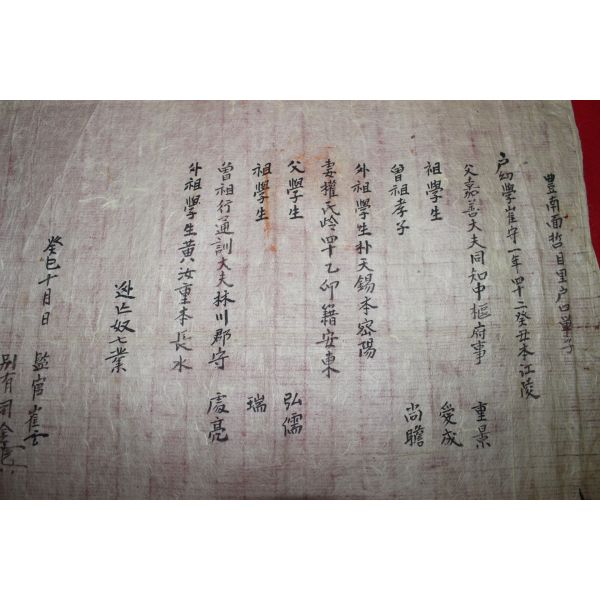 豊南面哲目里户口單子
户幼學崔守一年四十二癸丑本江陵
父嘉善大夫同知中樞府事 重景
祖學生 愛成
曾祖孝子 尚瞻
外祖學生朴天錫本密陽
妻權氏岭四十乙卯籍安東
父學生 弘儒
祖學生 瑞
曽祖行通訓大夫林川郡守 處亮
外祖學生黃汝重本長水
逃亡奴七業
癸巳十月日 監官崔
別有司